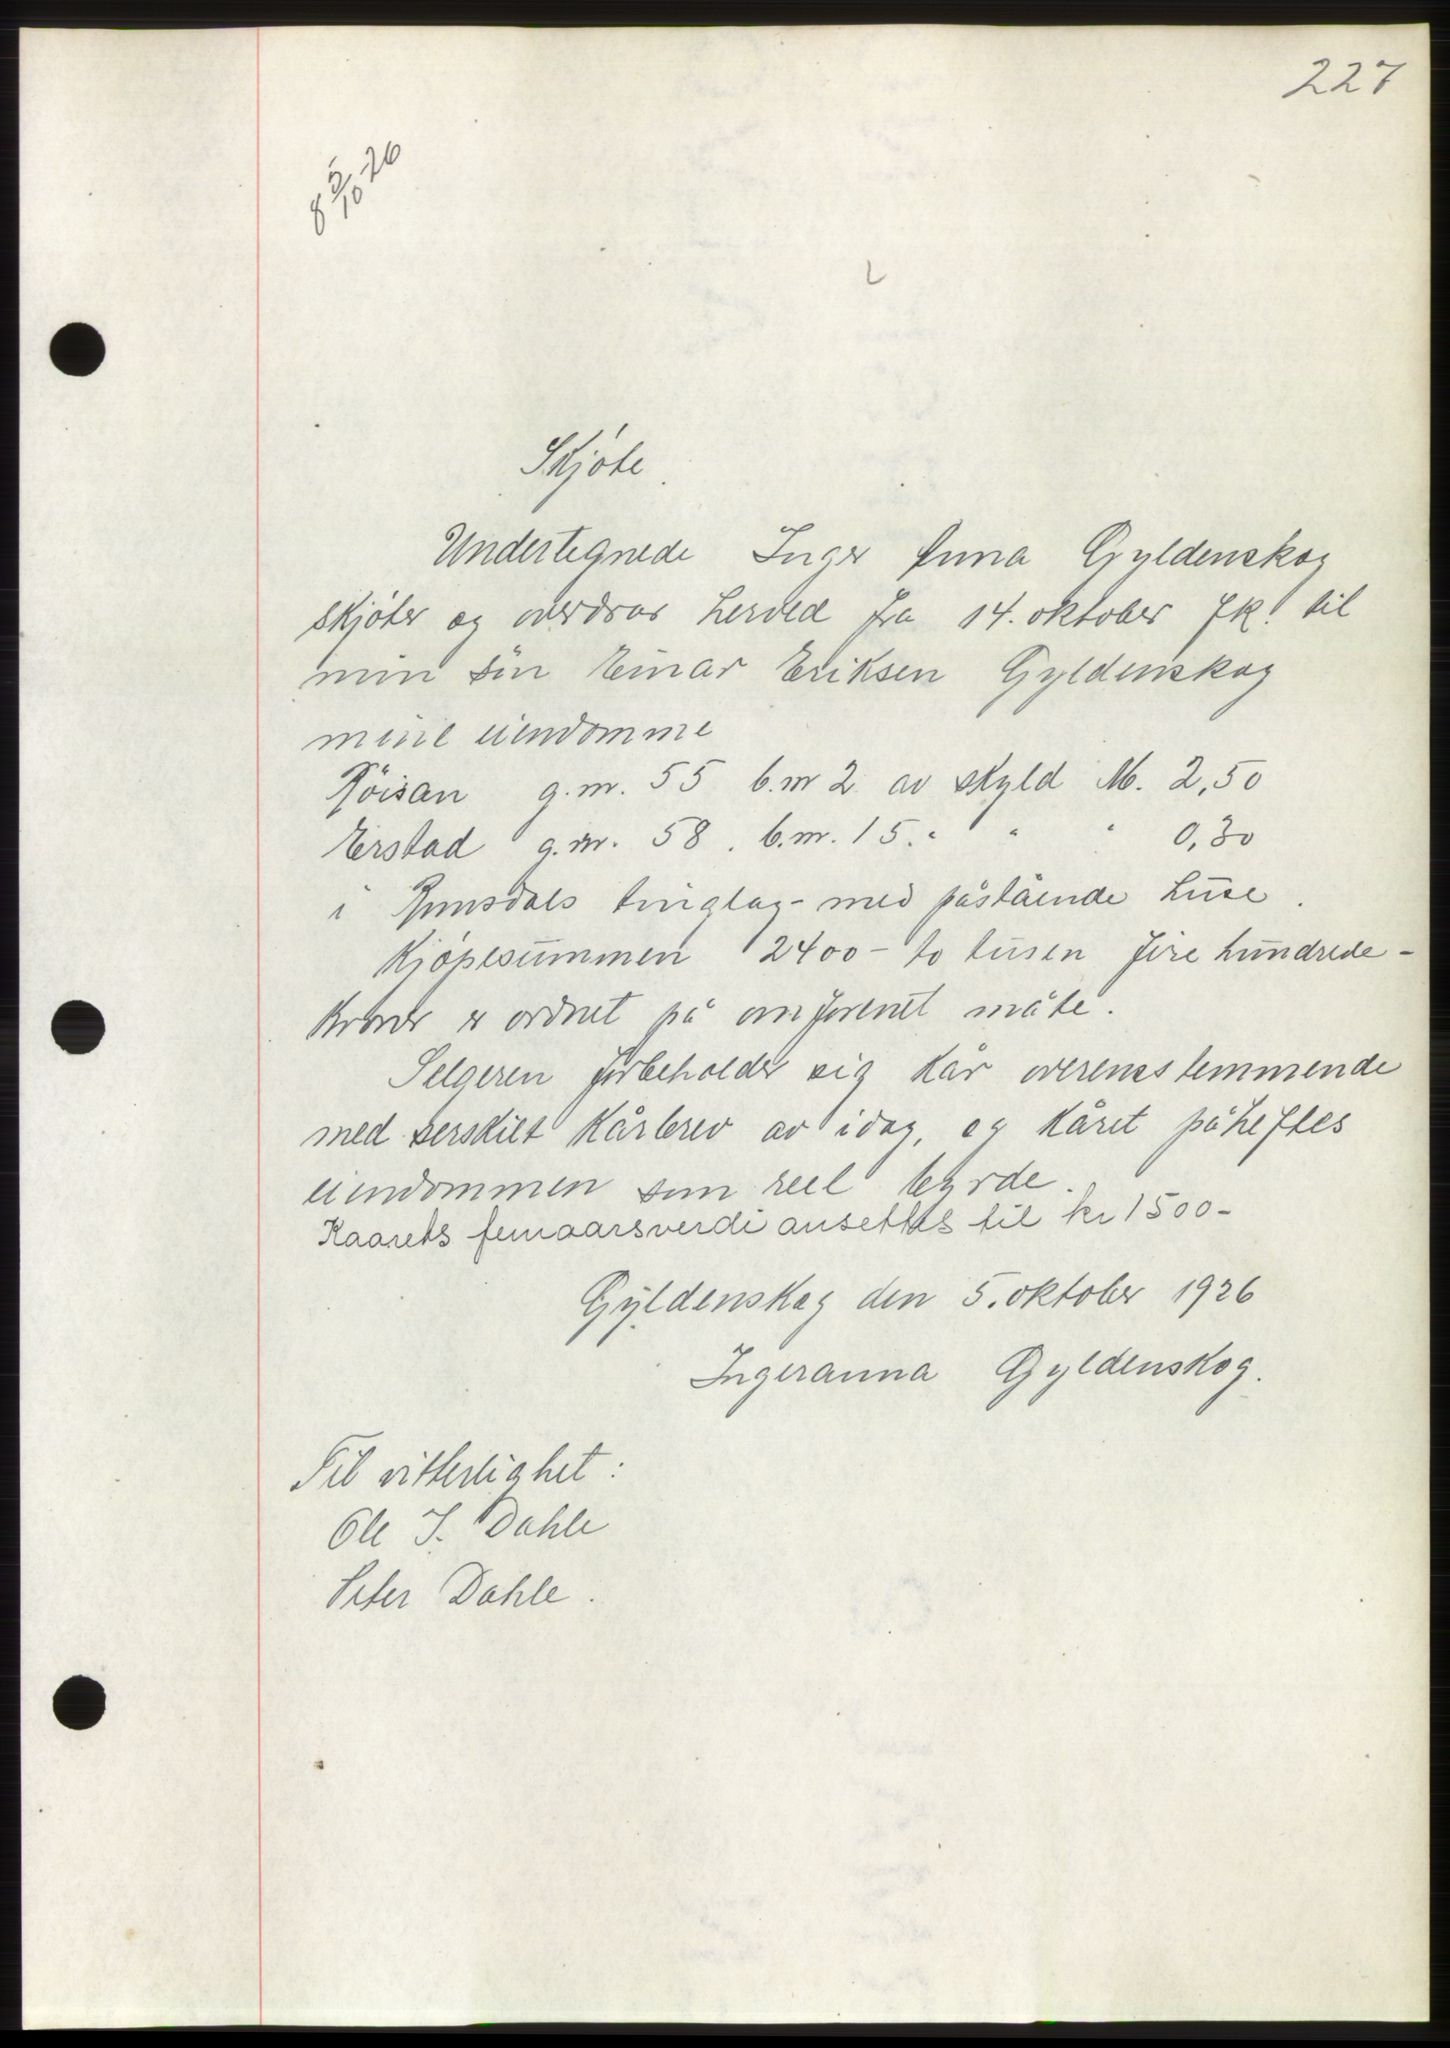 227
8 5/10 26
Skjøte.
Undertegnede Inger Anna Gyldenskog
skjøter og overdrar herved fra 14. oktober fk. til
min søn Einar Eriksen Gyldenskog
mine eiendomme
Röisan g.nr. 55 b.nr 2 av skyld M. 2,50
Eirstad g.nr. 58. b.nr. 15. " " " 0,30
i Romsdals tinglag - med påstående huse.
Kjøpesummen 2400 - to tusen fire hundrede -
kroner er ordnet på omforenet måte.
Selgeren forbeholder sig kår overensstemmende
med serskilt kårbrev av idag, og kåret påheftes
eiendommen som reel byrde.
Kaarets femaarsverdi ansettes til kr 1500 -
Gyldenskog den 5. oktober 1926
Ingeranna Gyldenskog.
Til vitterlighet:
Ole J. Dahle
Peter Dahle.